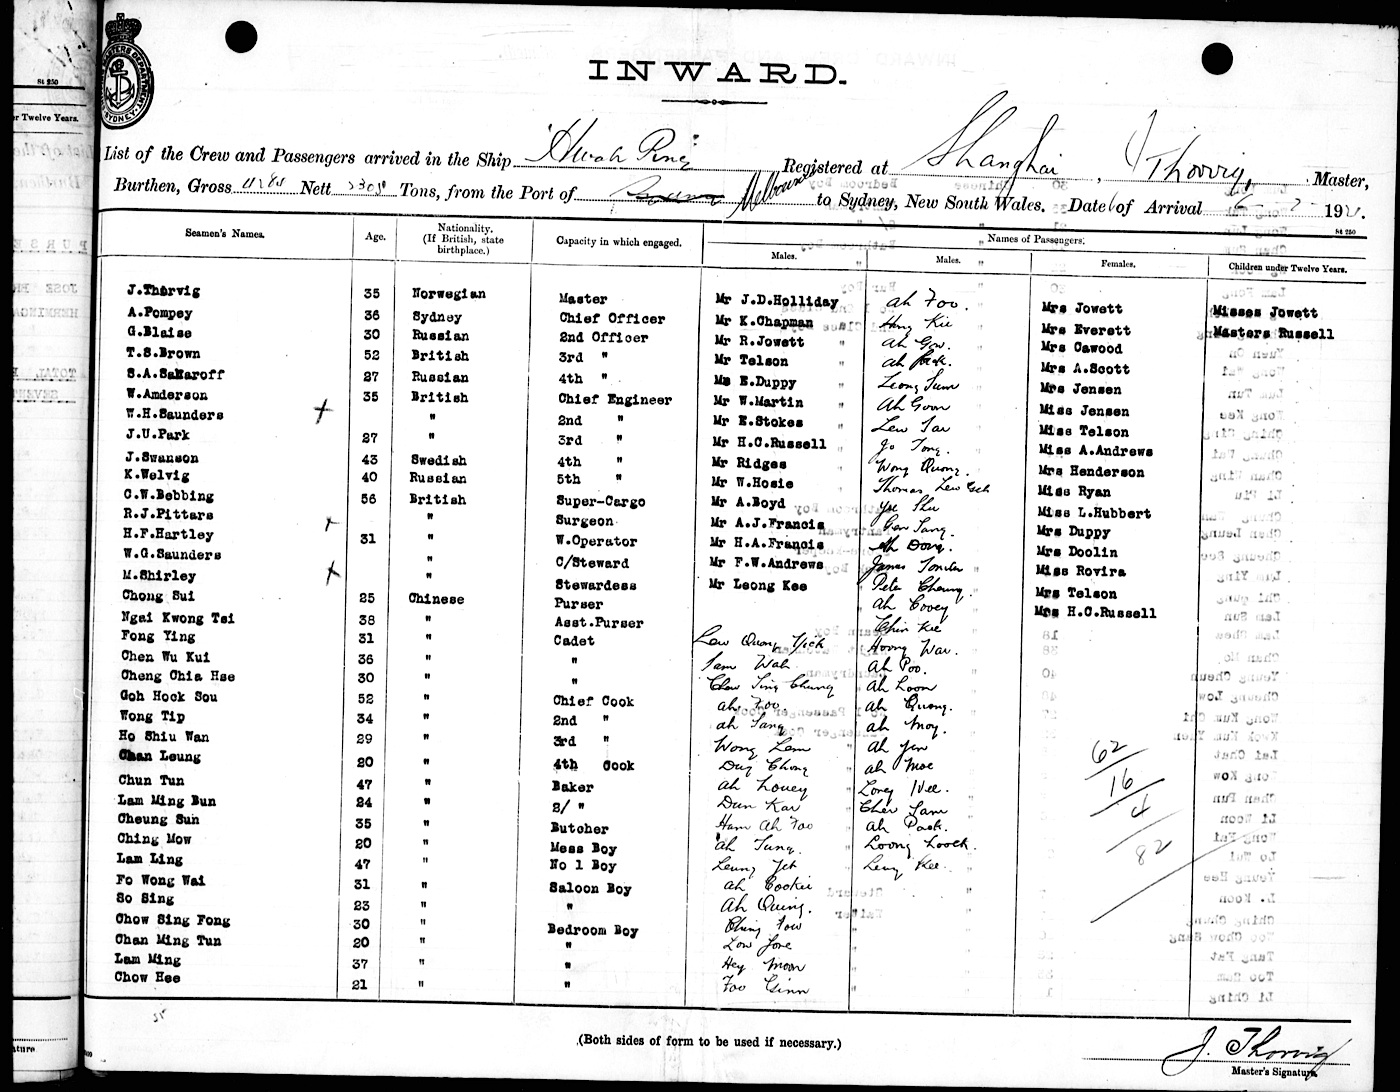 St 250
r Twelve Years.
MASTERS DEPARTMENT
SYDNEY
INWARD.
List of the Crew and Passengers arrived in the Ship "Hwah Ping" Registered at Shanghai, J Thorvig, Master,
Burthen, Gross Nett Tons, from the Port of Melbourne to Sydney, New South Wales. Date of Arrival 192
St 250
Seamen's Names. Age. Nationality. (If British, state birthplace.) Capacity in which engaged. Names of Passengers.
Males. Males. Females. Children under Twelve Years.
J.Thorvig 35 Norwegian Master Mr J.D.Holliday Ah Foo. Mrs Jowett Misses Jowett
A.Pompey 36 Sydney Chief Officer Mr K.Chapman Hong Kie Mrs Everett Masters Russell
G.Blaise 30 Russian 2nd Officer Mr R.Jowett " Ah Gow. Mrs Cawood
T.S.Brown 52 British 3rd " Mr Telson " Mrs A.Scott
S.A.Sakaroff 27 Russian 4th " Mr E.Duppy " Leong Sum Mrs Jensen
W.Anderson 35 British Chief Engineer Mr W.Martin " Ah Goon Miss Jensen
W.H.Saunders + " 2nd " Mr E.Stokes " Miss Telson
J.U.Park 27 " 3rd " Mr H.C.Russell " Jo Tong. Miss A.Andrews
J.Swanson 43 Swedish 4th " Mr Ridges " Wong Quong. Mrs Henderson
K.Welvig 40 Russian 5th " Mr W.Hosie " Thomas Lew Miss Ryan
C.W.Bebbing 56 British Super-Cargo Mr A.Boyd " Miss L.Hubbert
R.J.Pittars + " Surgeon Mr A.J.Francis " Mrs Duppy
H.F.Hartley 31 " W.Operator Mr H.A.Francis Ah Dong. Mrs Doolin
W.G.Saunders " C/Steward Mr F.W.Andrews James Miss Rovira
M.Shirley + " Stewardess Mr Leong Kee Peter Cheung. Mrs Telson
Chong Sui 25 Chinese Purser Ah Covey Mrs H.C.Russell
Ngai Kwong Tsi 38 " Asst.Purser Chin Kee
Fong Ying 31 " Cadet Lew Quong Hoong War.
Chen Wu Kui 36 " " Sam Wah Ah Poo.
Cheng Chia Hse 30 " " Chew Ting Chung Ah Loon
Goh Hock Sou 52 " Chief Cook Ah Foo Ah Quong.
Wong Tip 34 " 2nd " Ah Sang Ah Moy.
Ho Shiu Wan 29 " 3rd " Wong Lem Ah Jin
Chan Leung 20 " 4th Cook Duy Chong Ah Moe
Chun Tun 47 " Baker Ah Louey
Lam Ming Bun 24 " 2/ " Dun Kar Cher Sam
Cheung Sun 35 " Butcher Ham Ah Foo Ah Pack.
Ching Mow 20 " Mess Boy Ah Tung. Loong Loock.
Lam Ling 47 " No 1 Boy Leung Yet Leuy Kee
Fo Wong Wai 31 " Saloon Boy Ah Cookie
So Sing 23 " " Ah Quing.
Chow Sing Fong 30 " Bedroom Boy Ching Tow
Chan Ming Tun 20 " " Low Jore
Lam Ming 37 " " Hey Moon
Chow Hee 21 " " Foo Ginn
62
16
4
82
(Both sides of form to be used if necessary.)
J. Thorvig
Master's Signature.